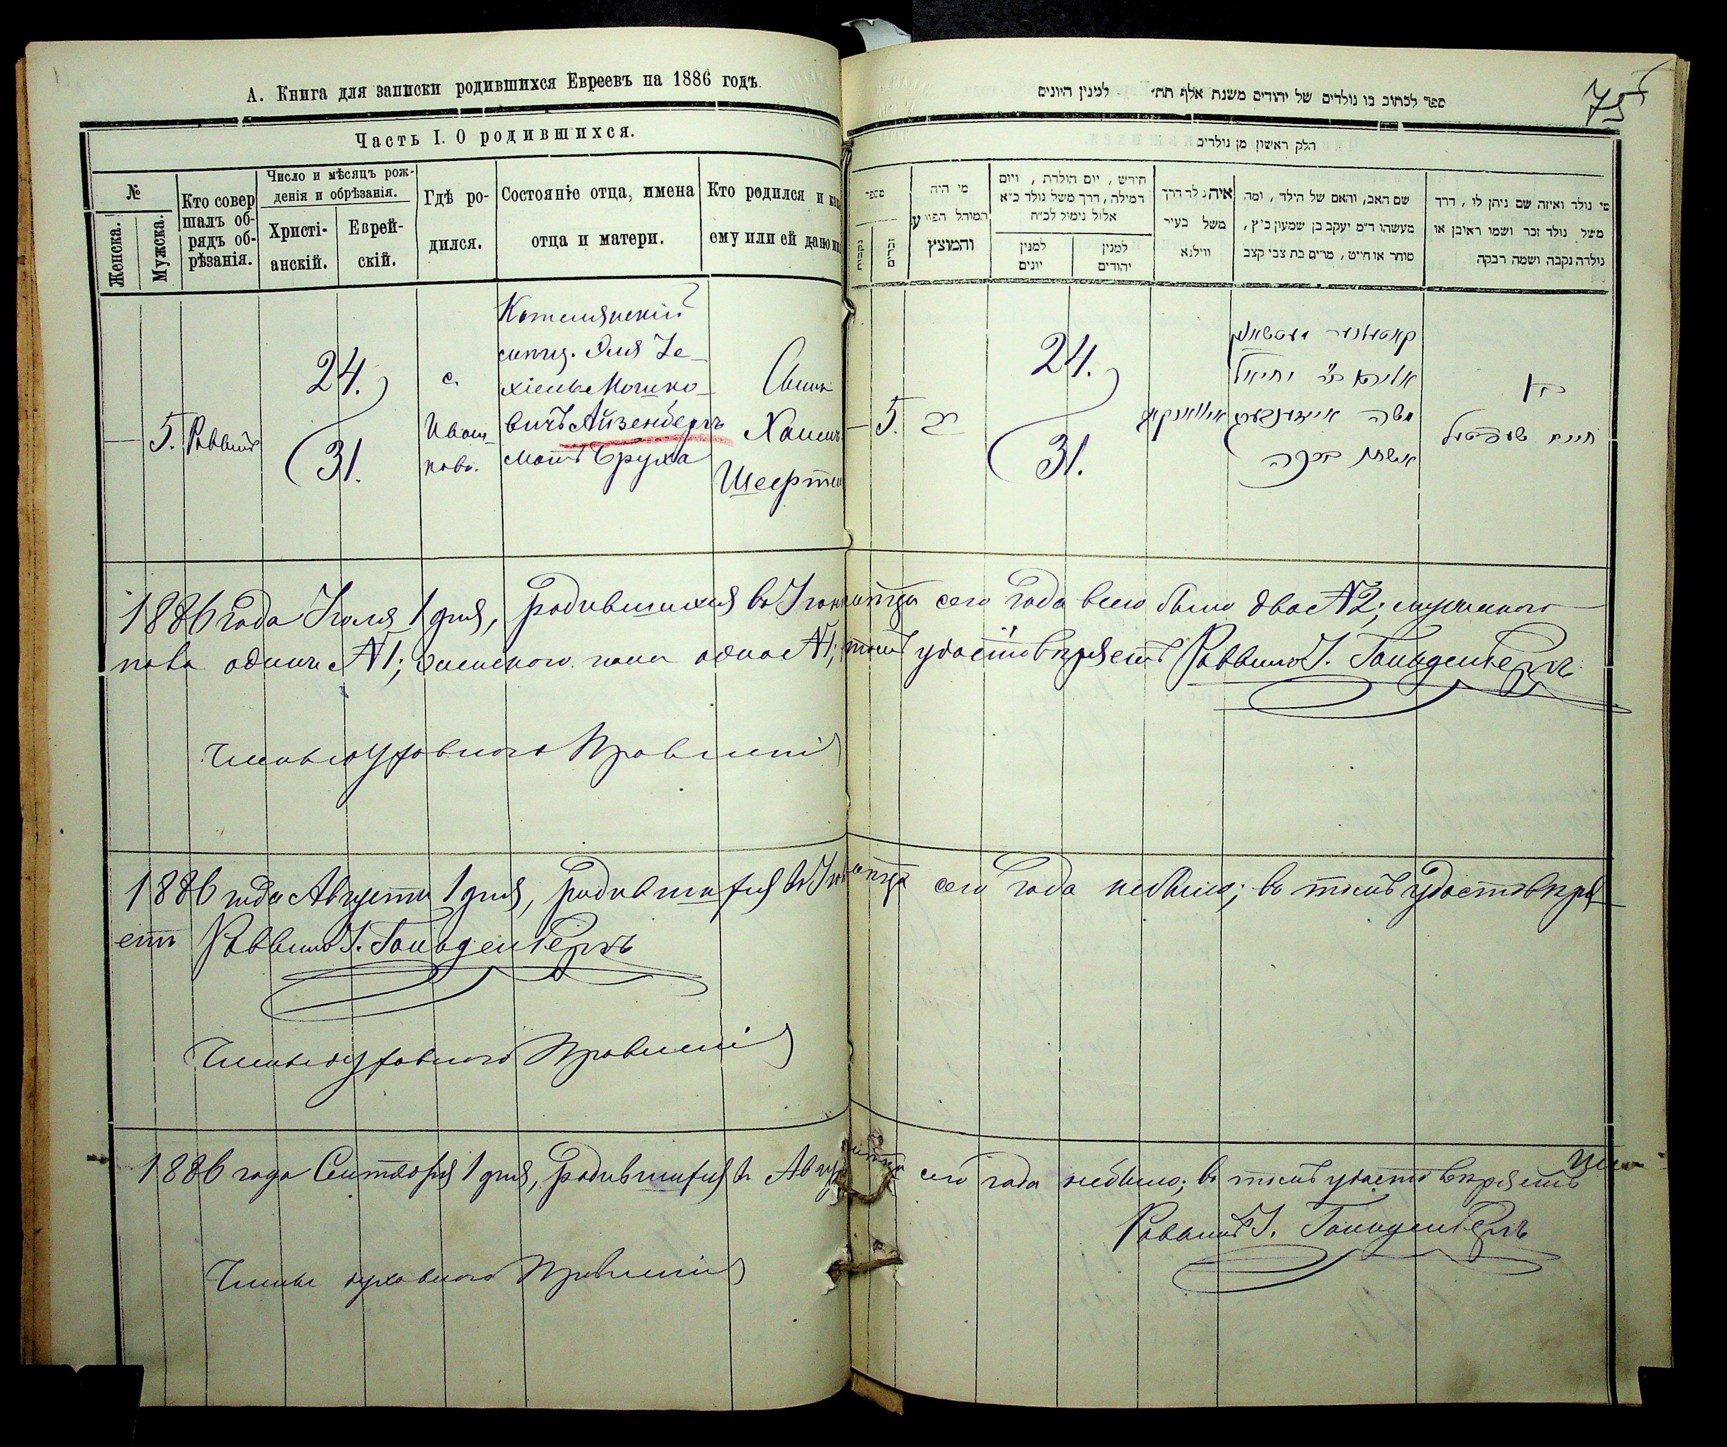 А. Книга для записки родившихся Евреевъ на 1886 годъ
Часть I. О родившихся.
№
Женска.
Мужска.
Кто совер
шалъ об-
рядъ об-
рѣзанія.
Число и мѣсяцъ рож-
денія и обрѣзанія.
Христі-
анскій.
Еврей-
скій.
Гдѣ ро-
дился.
Состояніе отца, имена
отца и матери.
Кто родился и как
ему или ей дано им
5.
Раввинъ
24.
31.
с.
Иваш-
ково.
Котелянскій
Эля Іе-
хіель Мошко-
вичъ Айзенбергъ
мать Бруха
Сынъ
Хаимъ
ספר לכתוב בו נולדים של יהודים משנת אלף תת׳ למנין היונים
75
חלק ראשון מן נולדים
מספר
נקבות
זכרים
מי היה
המוהל הפורע
והמוצץ
חודש , יום הולדת , ויום
דמילה , דרך משל נולד כ״א
אלול נימול לכ״ח
למנין
יונים
למנין
יהודים
איה נולד דרך
משל בעיר
ווילנא
שם האב, והאם של הילד , ומה
מעשהו ד״מ יעקב בן שמעון כ״ץ ,
סוחר או חייט , מרים בת צבי קצב
מי נולד ואיזה שם ניתן לו , דרך
משל נולד זכר ושמו ראובן או
נולדה נקבה ושמה רבקה
5.
24.
31.
משה אייזענבערג
אשתו ברכה
בן
חיים
1886 года Іюля 1 дня, родившихся въ Іюнѣ мѣсяцѣ сего года всего было два №2; мужскаго
пола одинъ №1; женскаго пола одна №1; въ томъ удостовѣряетъ Раввинъ І. Гольденбергъ
Члены духовнаго Правленія
1886 года Августа 1 дня, родившихся въ Іюлѣ мѣсяцѣ сего года небыло; въ томъ удостовѣря
етъ Раввинъ І. Гольденбергъ
Члены духовнаго Правленія
1886 года Сентября 1 дня, родившихся въ Августѣ мѣсяцѣ сего года небыло; въ томъ удостовѣряетъ
Раввинъ І. Гольденбергъ
Члены духовнаго Правленія